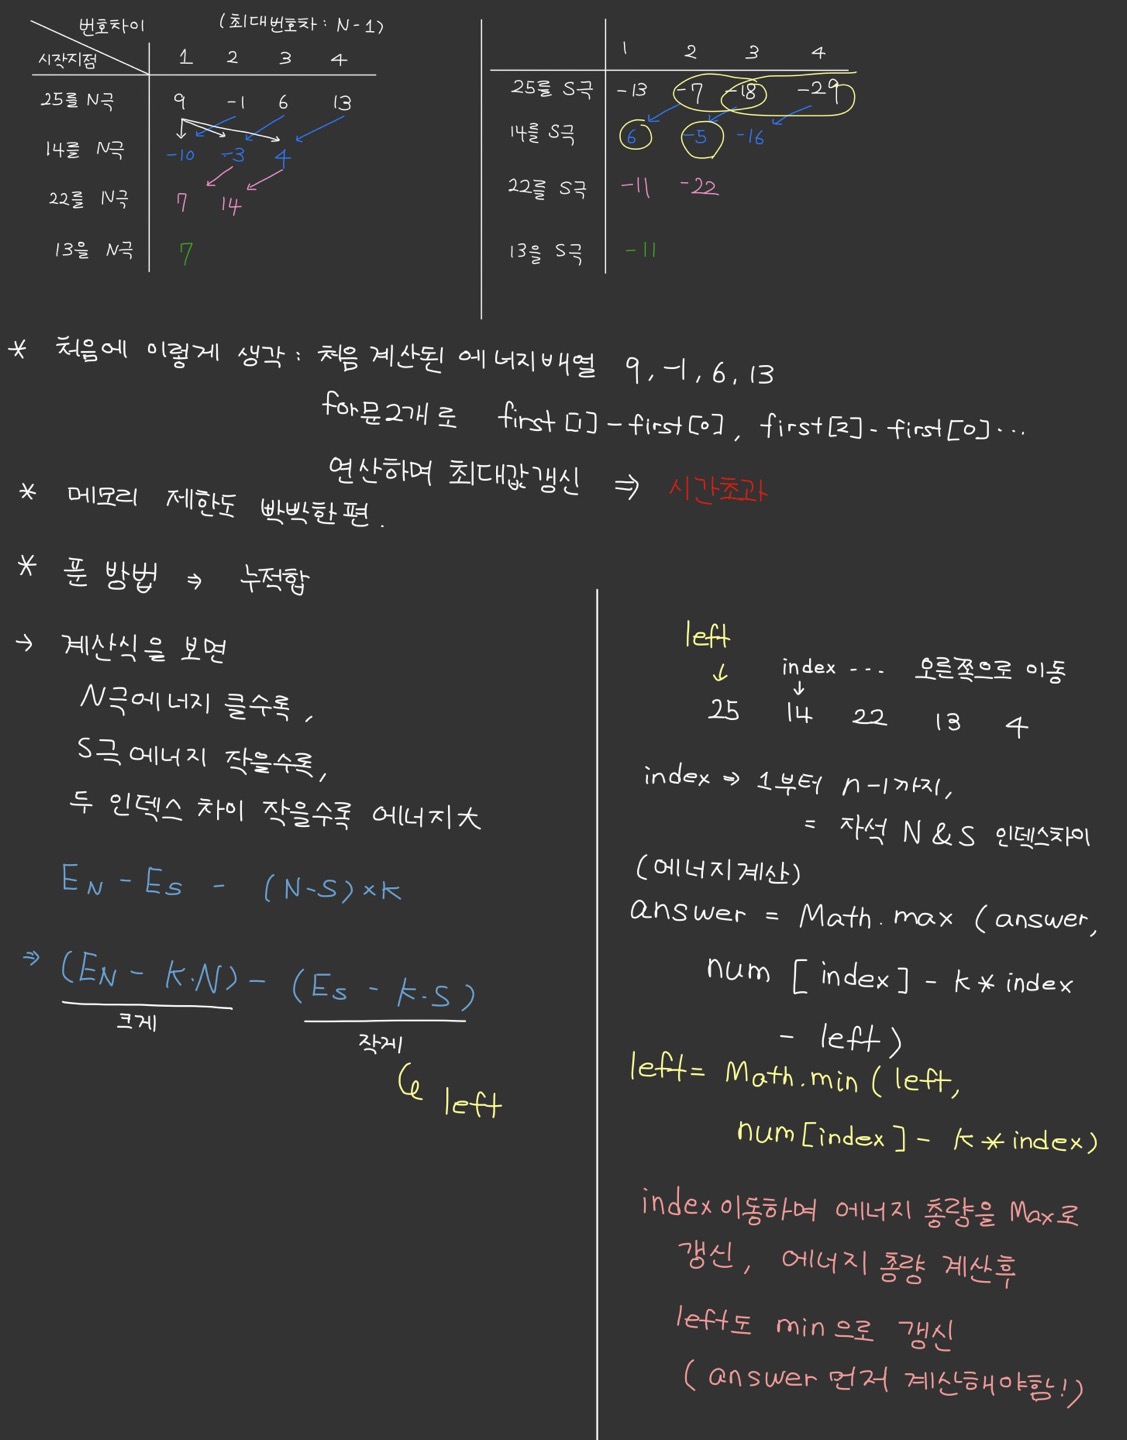 번호차이 (최대번호차 : N-1)
시작지점 1 2 3 4
25를 N극 9 -1 6 13
14를 N극 -10 -3 4
22를 N극 7 14
13을 N극 7
1 2 3 4
25를 S극 -13 -7 -18 -29
14를 S극 6 -5 -16
22를 S극 -11 -22
13을 S극 -11
* 처음에 이렇게 생각 : 처음 계산된 에너지배열 9, -1, 6, 13
for문2개로 first [1] - first[0], first[2] - first[0] ...
연산하며 최대값갱신 ⇒ 시간초과
* 메모리 제한도 빡빡한편.
* 푼 방법 ⇒ 누적합
→ 계산식을 보면
N극에너지 클수록,
S극에너지 작을수록,
두 인덱스 차이 작을수록 에너지大
EN - ES - (N-S)×K
⇒ (EN - K.N) - (ES - K.S)
크게 작게
left
left
↓ index ... 오른쪽으로 이동
↓
25 14 22 13 4
index ⇒ 1부터 n-1까지,
= 자석 N & S 인덱스차이
(에너지계산)
answer = Math.max (answer,
num [index] - k * index
- left)
left = Math.min (left,
num[index] - K * index)
index이동하며 에너지 총량을 Max로
갱신, 에너지 총량 계산후
left도 min으로 갱신
(answer 먼저 계산해야함!)